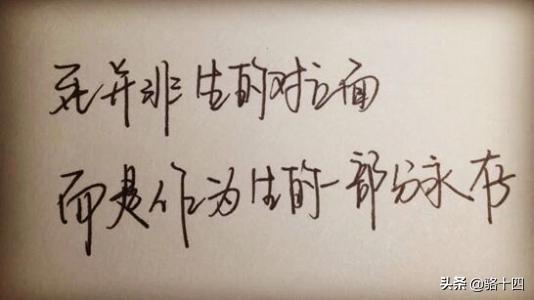 死并非生的对立面
而是作为生的一部分永存
头条 @骆十四